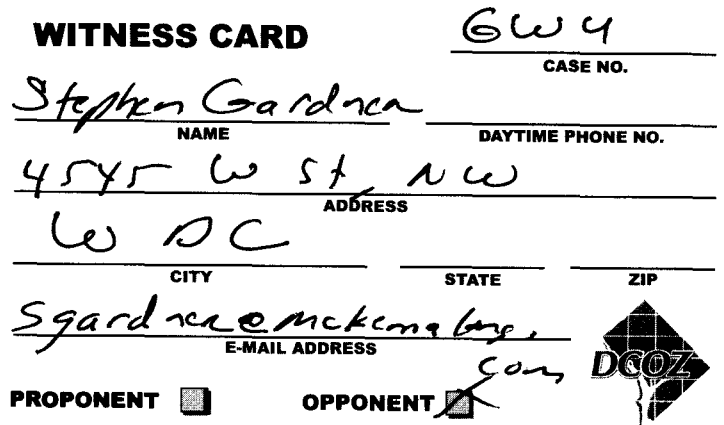 WITNESS CARD
GW4
CASE NO.
Stephen Gardner
NAME
DAYTIME PHONE NO.
4545 W St, NW
ADDRESS
W DC
CITY
STATE
ZIP
E-MAIL ADDRESS
com
DCOZ
PROPONENT
OPPONENT